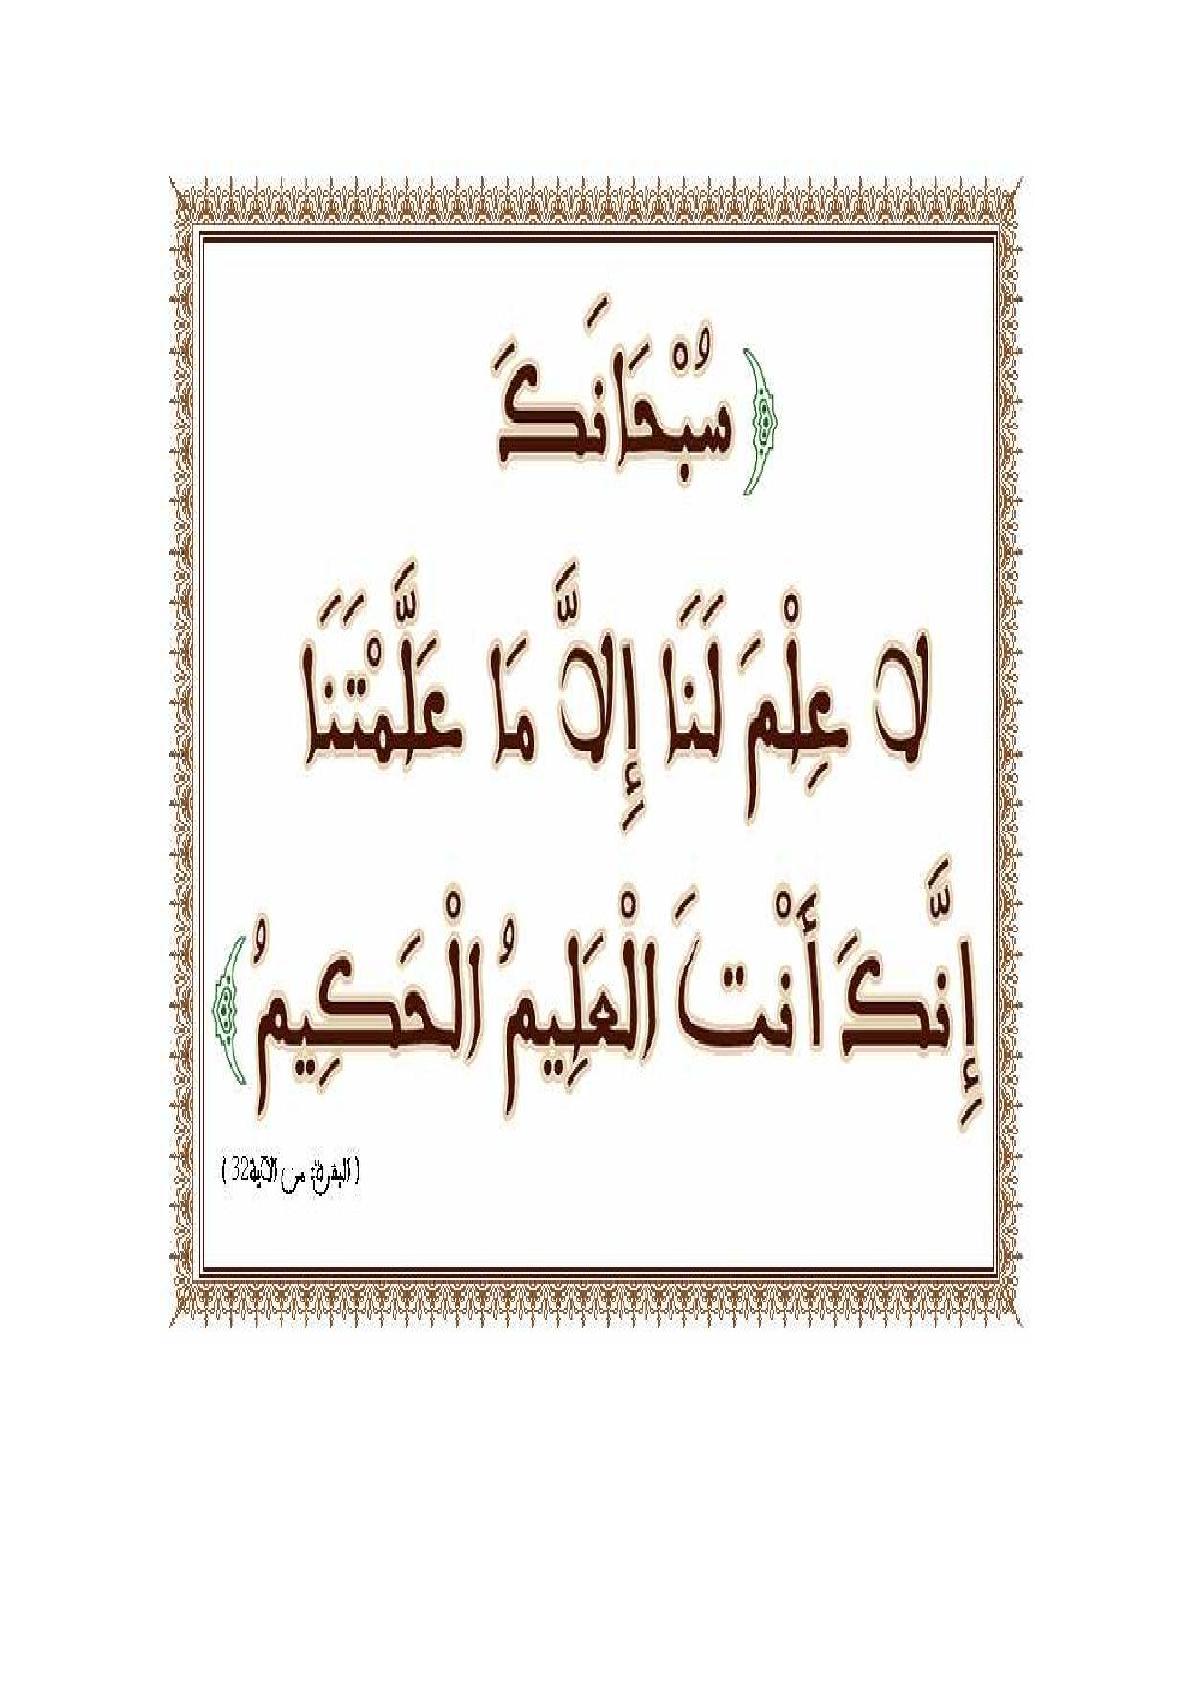 ﴿ سُبْحَانَكَ
لا عِلْمَ لَنَا إِلاَّ مَا عَلَّمْتَنَا
إِنَّكَ أَنْتَ الْعَلِيمُ الْحَكِيمُ ﴾
( البقرة: من الآية32 )